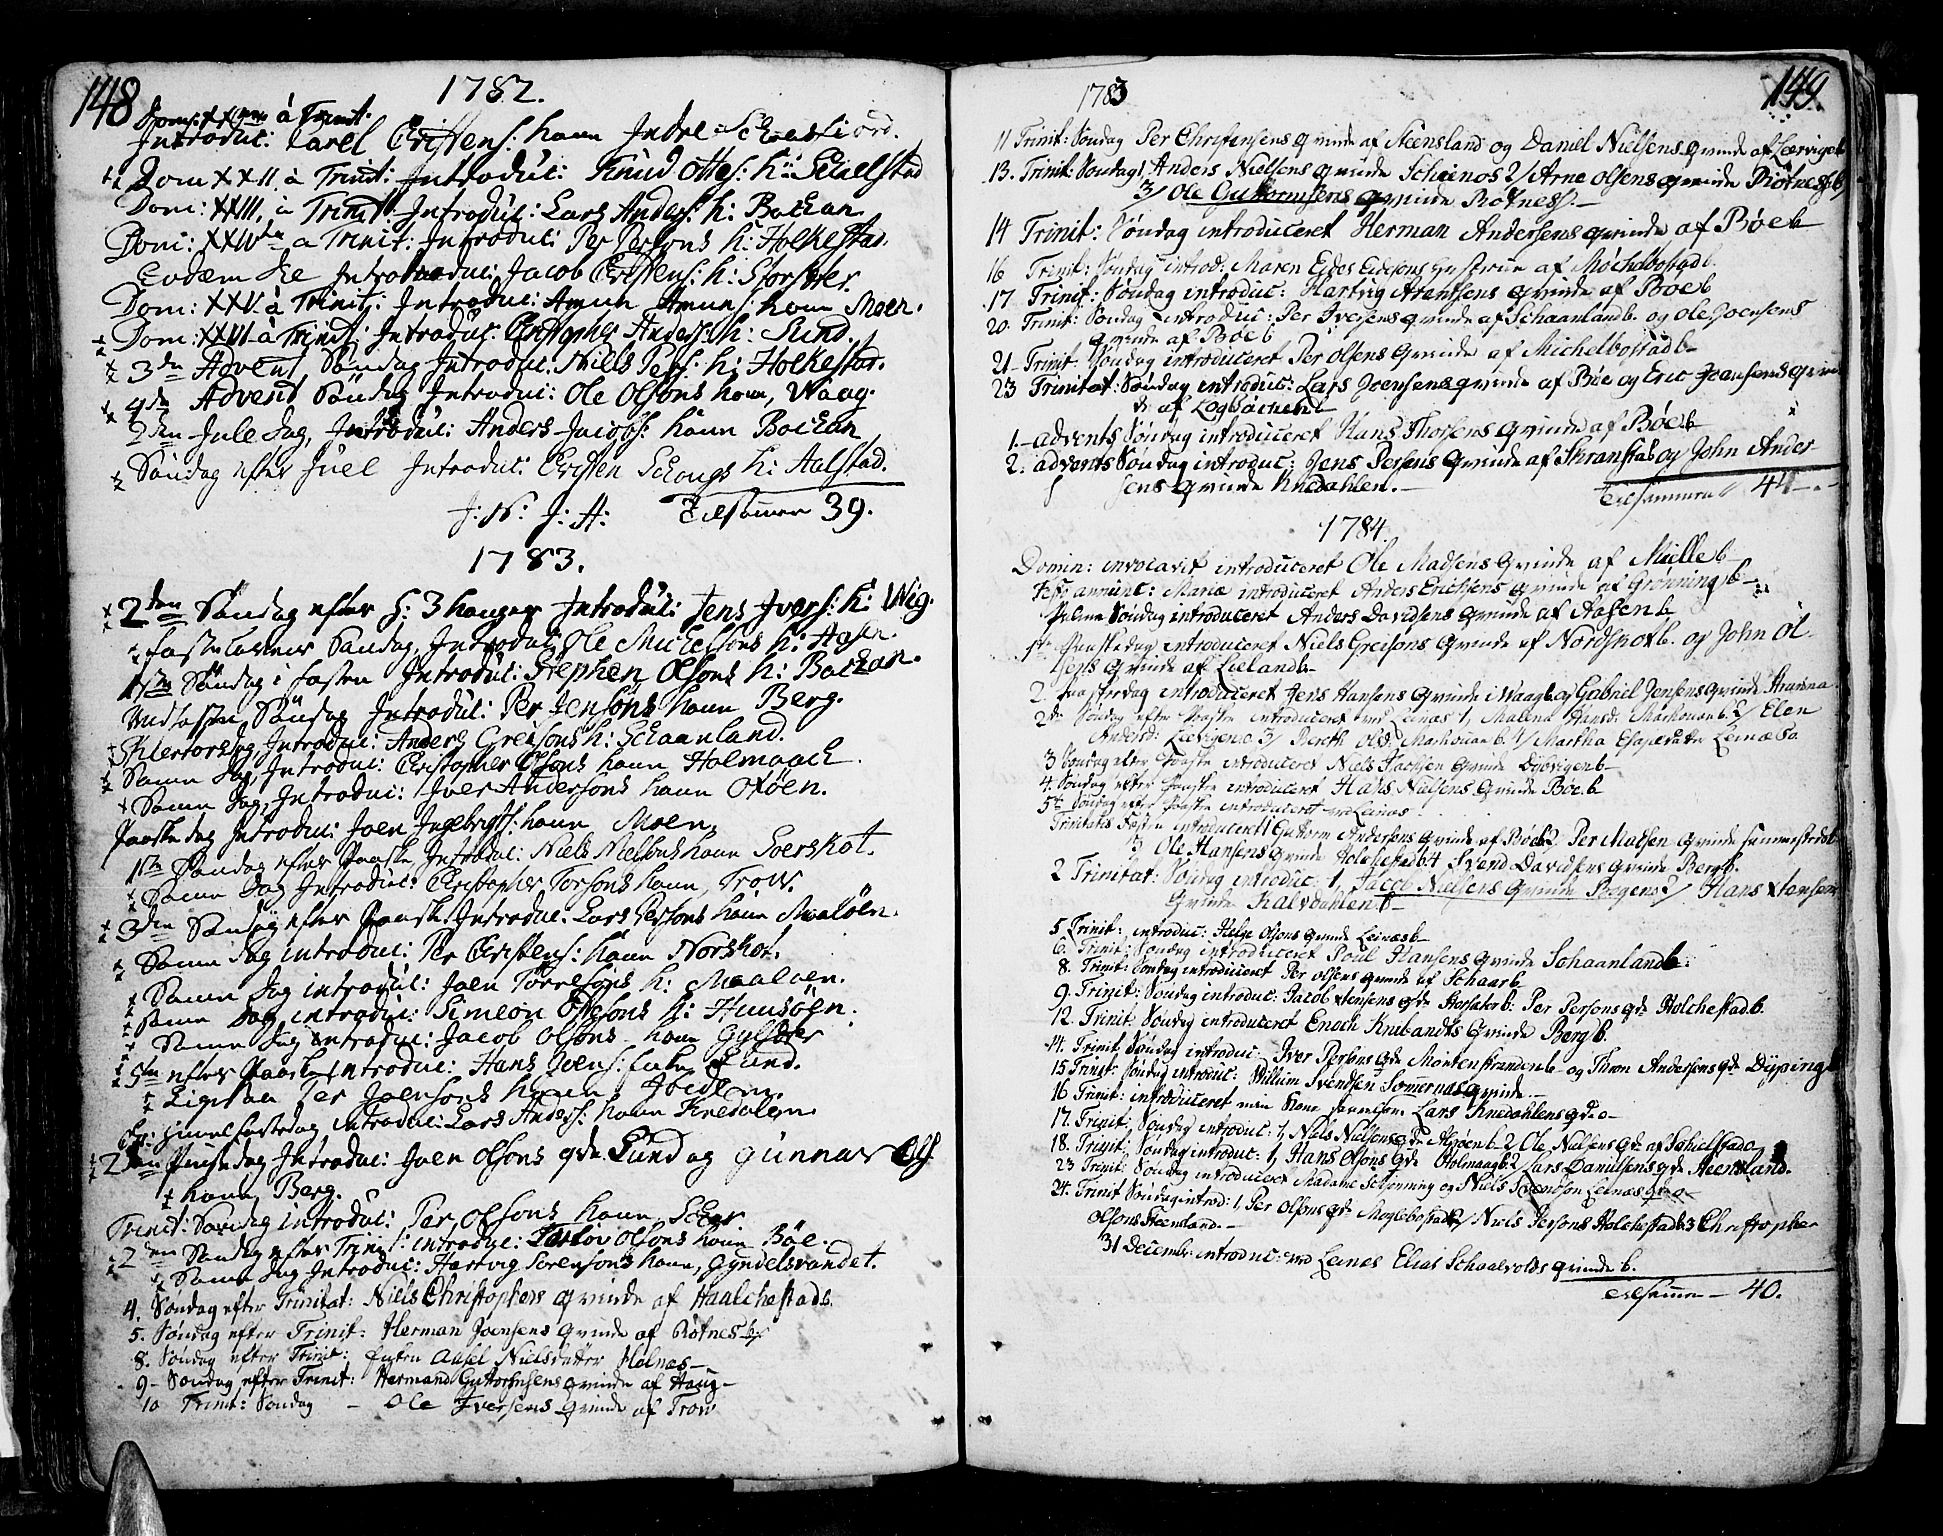 148
1782.
Dom: XXI à Trinit.
Introduc: Carel Cristens: kone Indre
Dom XXII à Trinit: Introduc: Knud Ottes: k:
Dom: XXIII. à Trinit: Introduc: Lars Anders: k: Bockan
Dom: XXIV a Trinit: Introduc: Per Persons k: Holkestad.
Eodem Die Introduc: Jacob Cristens: k: Storsæter.
Dom: XXV. à Trinit: Introduc: Amun Amuns: kone Moen.
Dom: XXVI à Trinit: Introduc: Cristopher Anders: k: Sund.
3die Advent Søndag Introduc: Niels Pers: k: Holkestad.
4de Advent Søndag Introduc: Ole Olsons kone, Waag.
2den Jule dag, Introduc: Anders Jacobs: kone Bockan
Søndag efter Juel Introduc: Cristen k: Aalstad.
J: N: J: H: Tilsamen 39.
1783.
2den Søndag efter H: 3 konger Introduc: Jens Ivers: k: Wig.
fastelavens Søndag, Introduc: Ole Mickelsons k: Aasen.
1ste Søndag i fasten Introduc: Stephen Olsons k: Bockan.
Midfasten Søndag Introduc: Per Jensons kone Berg.
Skiertorsdag, Introduc: Anders Greisons k: Schaanland.
Samme Dag, Introduc: Cristopher Olsons kone Holmaack.
Samme Dag, Introduc: Iver Andersons kone Oxøen.
Paaske dag Introduc: Joen Ingebrigts: kone Moen.
1ste Søndag efter Paaske, Introduc: Niels Nielsons kone
Samme Dag Introduc: Cristopher Torsons kone, Trow.
3die Søndag efter Paaske, Introduc: Lars Persons kone Maaløen.
Samme Dag introduc: Per Cristens: kone Norskot.
Samme Dag introduc: Joen Torresons k: Maaloen.
Samme Dag introduc: Simeon k: Hunsøen.
Samme Dag introduc: Jacob Olsons kone
5te efter Paaske introduc: Hans Joens: Enke Sund.
Ligesaa Per Joensons kone Ibidem.
Chr: himmelfartsdag introduc: Lars Anders: kone Knedalen.
2den Pinsedag Introduc: Joen Olsons qde Sund og Gunnar Ols:
kone, Berg.
Trinit: Søndag introduc: Per Olsons kone
2den Søndag efter Trinit: introduc: Olsons kone Bøe.
Samme Dag Introduc: Hartvig Sørensons kone, Gyndelsvandet.
4. Søndag efter Trinitat: Niels Christophers Qvinde af Haalchestad.
5. Søndag efter Trinit: Herman Joensens Qvinde af Rotnes
8. Søndag efter Trinit: Enken Nielsdatter Holnes
9 Søndag efter Trinit: Hermand Guttormsens Qvinde af Haug
10 Trinit: Søndag Ole Iversens Qvinde af Trow
149.
1783
11 Trinit: Søndag Per Christensens Qvinde af Steensland og Daniel Nielsens Qvinde af
13. Trinit: Søndag 1, Anders Nielsens Qvinde 2/ Arne Olsens Qvinde Røtness b/
3/ Ole Guttormsens Qvinde Røtness.
14 Trinit: Søndag introduceret Herman Andersens Qvinde af Bøe b
16 Trinit: Søndag introd: Maren af
17 Trinit: Søndag introduc: Hartvig Arentsens Qvinde af Bøe b
20. Trinit: Søndag introduc: Per Iversens Qvinde af Schaanland b. og Ole Joensens
Qvinde af Bøe b
21 Trinit. Søndag introduceret Per Olsens Qvinde af Michelbostad b
23 Trinitat: Søndag introduc: Lars Joensens Qvinde af Bøe og Eric Joensens Qvin
de af
1. Advents Søndag introduceret Hans Thorsens Qvinde af Bøe b
2. Advents Søndag introduc: Jens Persens Qvinde af og John Ander
sens Qvinde Knedahlen.
Tilsammen 44
1784.
Domin: invocavit introduceret Ole Madsens Qvinde af Mielle b
Fest: annunc: Mariæ introduceret Anders Erichsens Qvinde af Grønning b
Palme Søndag introduceret Anders Davidsens Qvinde af Aasen b
1ste Paaskedag introduceret Niels Greisons Qvinde af Nordskot b. og John Ol
sens Qvinde af Lieland b
2. Paaskedag introduceret Jens Hansens Qvinde i Waag b og Gabriel Jensens Qvinde
2den Søndag efter Paaske introduceret ved Leines 1, Malena Hansd: 2/ Elen
Andersd: 3/ Bereth Olsd: 4/ Martha Leines
3 Søndag efter Paaske introduceret Niels Qvinde Dybvigen b
4. Søndag efter Paaske introduceret Hans Nielsens Qvinde Bøe b
5te Søndag efter Paaske introduceret ved Leines
Trinitatis Festen introduceret 1 Guttorm Andersens Qvinde af Bøe b 2 Per Madsen Qvinde
3 Ole Hansens Qvinde Holchestad b 4 Svend Davidsens Qvinde Berg b.
2 Trinitat: Søndag introduc: 1, Jacob Nielsens Qvinde 2/ Hans Jensens
Qvinde Kalvdahlen b
5 Trinit: introduc: Helge Olsons Qvinde Leines b
6. Trinit: Søndag introduceret Poul Hansens Qvinde Schaanland b.
8. Trinit: Søndag introduceret Per Olsens Qvinde af
9. Trinit: Søndag introduc: Jacob Jensens Qde Storsæter b. Per Persons Qde Holchestad b.
12. Trinit: Søndag introduceret Enoch Qvinde Berg b.
14. Trinit Søndag introduc: Iver Qde b og Thron Andersens Qde Dyping
15 Trinit: Søndag introduc: Willum Svendsen Qvinde
16 Trinit: introduceret min Kone Lars Knedahlens Qde
17. Trinit: Søndag introduc: 1, Niels Nielsens Qde 2 Ole Nielsens Qde af
18. Trinit: Søndag introduc: 1, Hans Olsons Qde Holmaag b 2/ Lars Danielsens Qde Steensland.
23 Trinit: Søndag introduceret Madame og Niels Svendsen Leines
24. Trinit Søndag introd: 1, Per Olsons Qde 2/ Niels Persons Holchestad 3 Christopher
Olsons Steensland.
31 Decembr introduc: ved Leines Elias Schaalvolds Qvinde b.
Tilsamen 40.